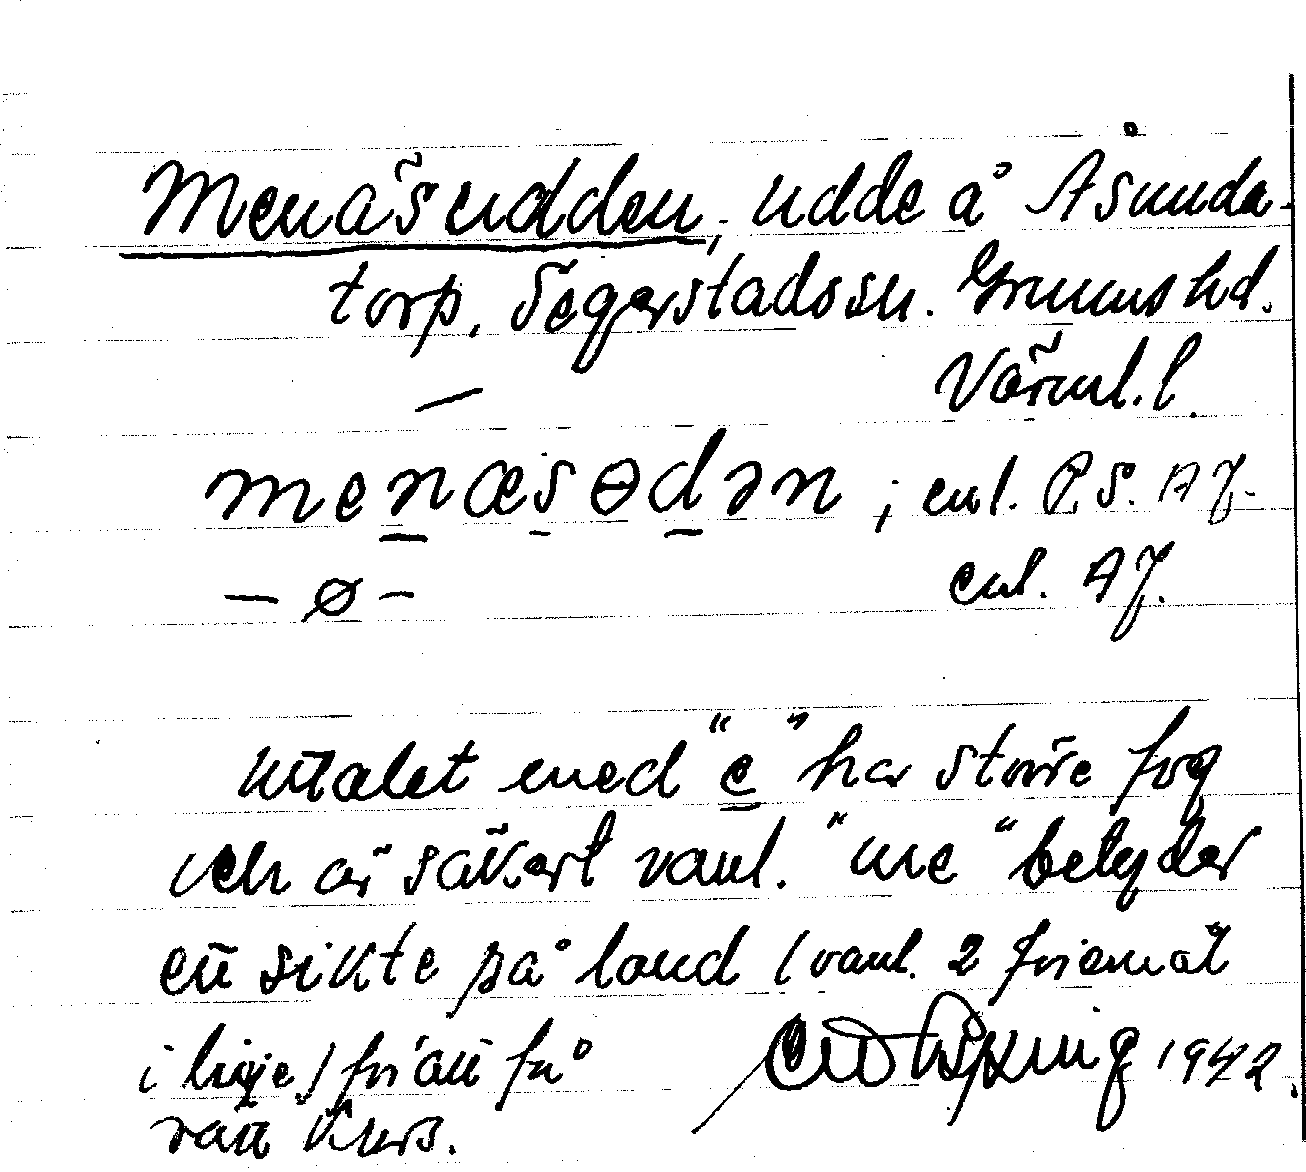 Menäsudden, udde å Åsunda-
torp, Segerstads sn. Grums hd.
Värml. l.
menæsɵdən ; enl. P.S. AJ.
– ø – enl. AJ.
Uttalet med "e" har större fog
och är säkert vanl. "me" betyder
ett sikte på land (vanl. 2 föremål
i linje) för att få 1942.
rätt kurs.